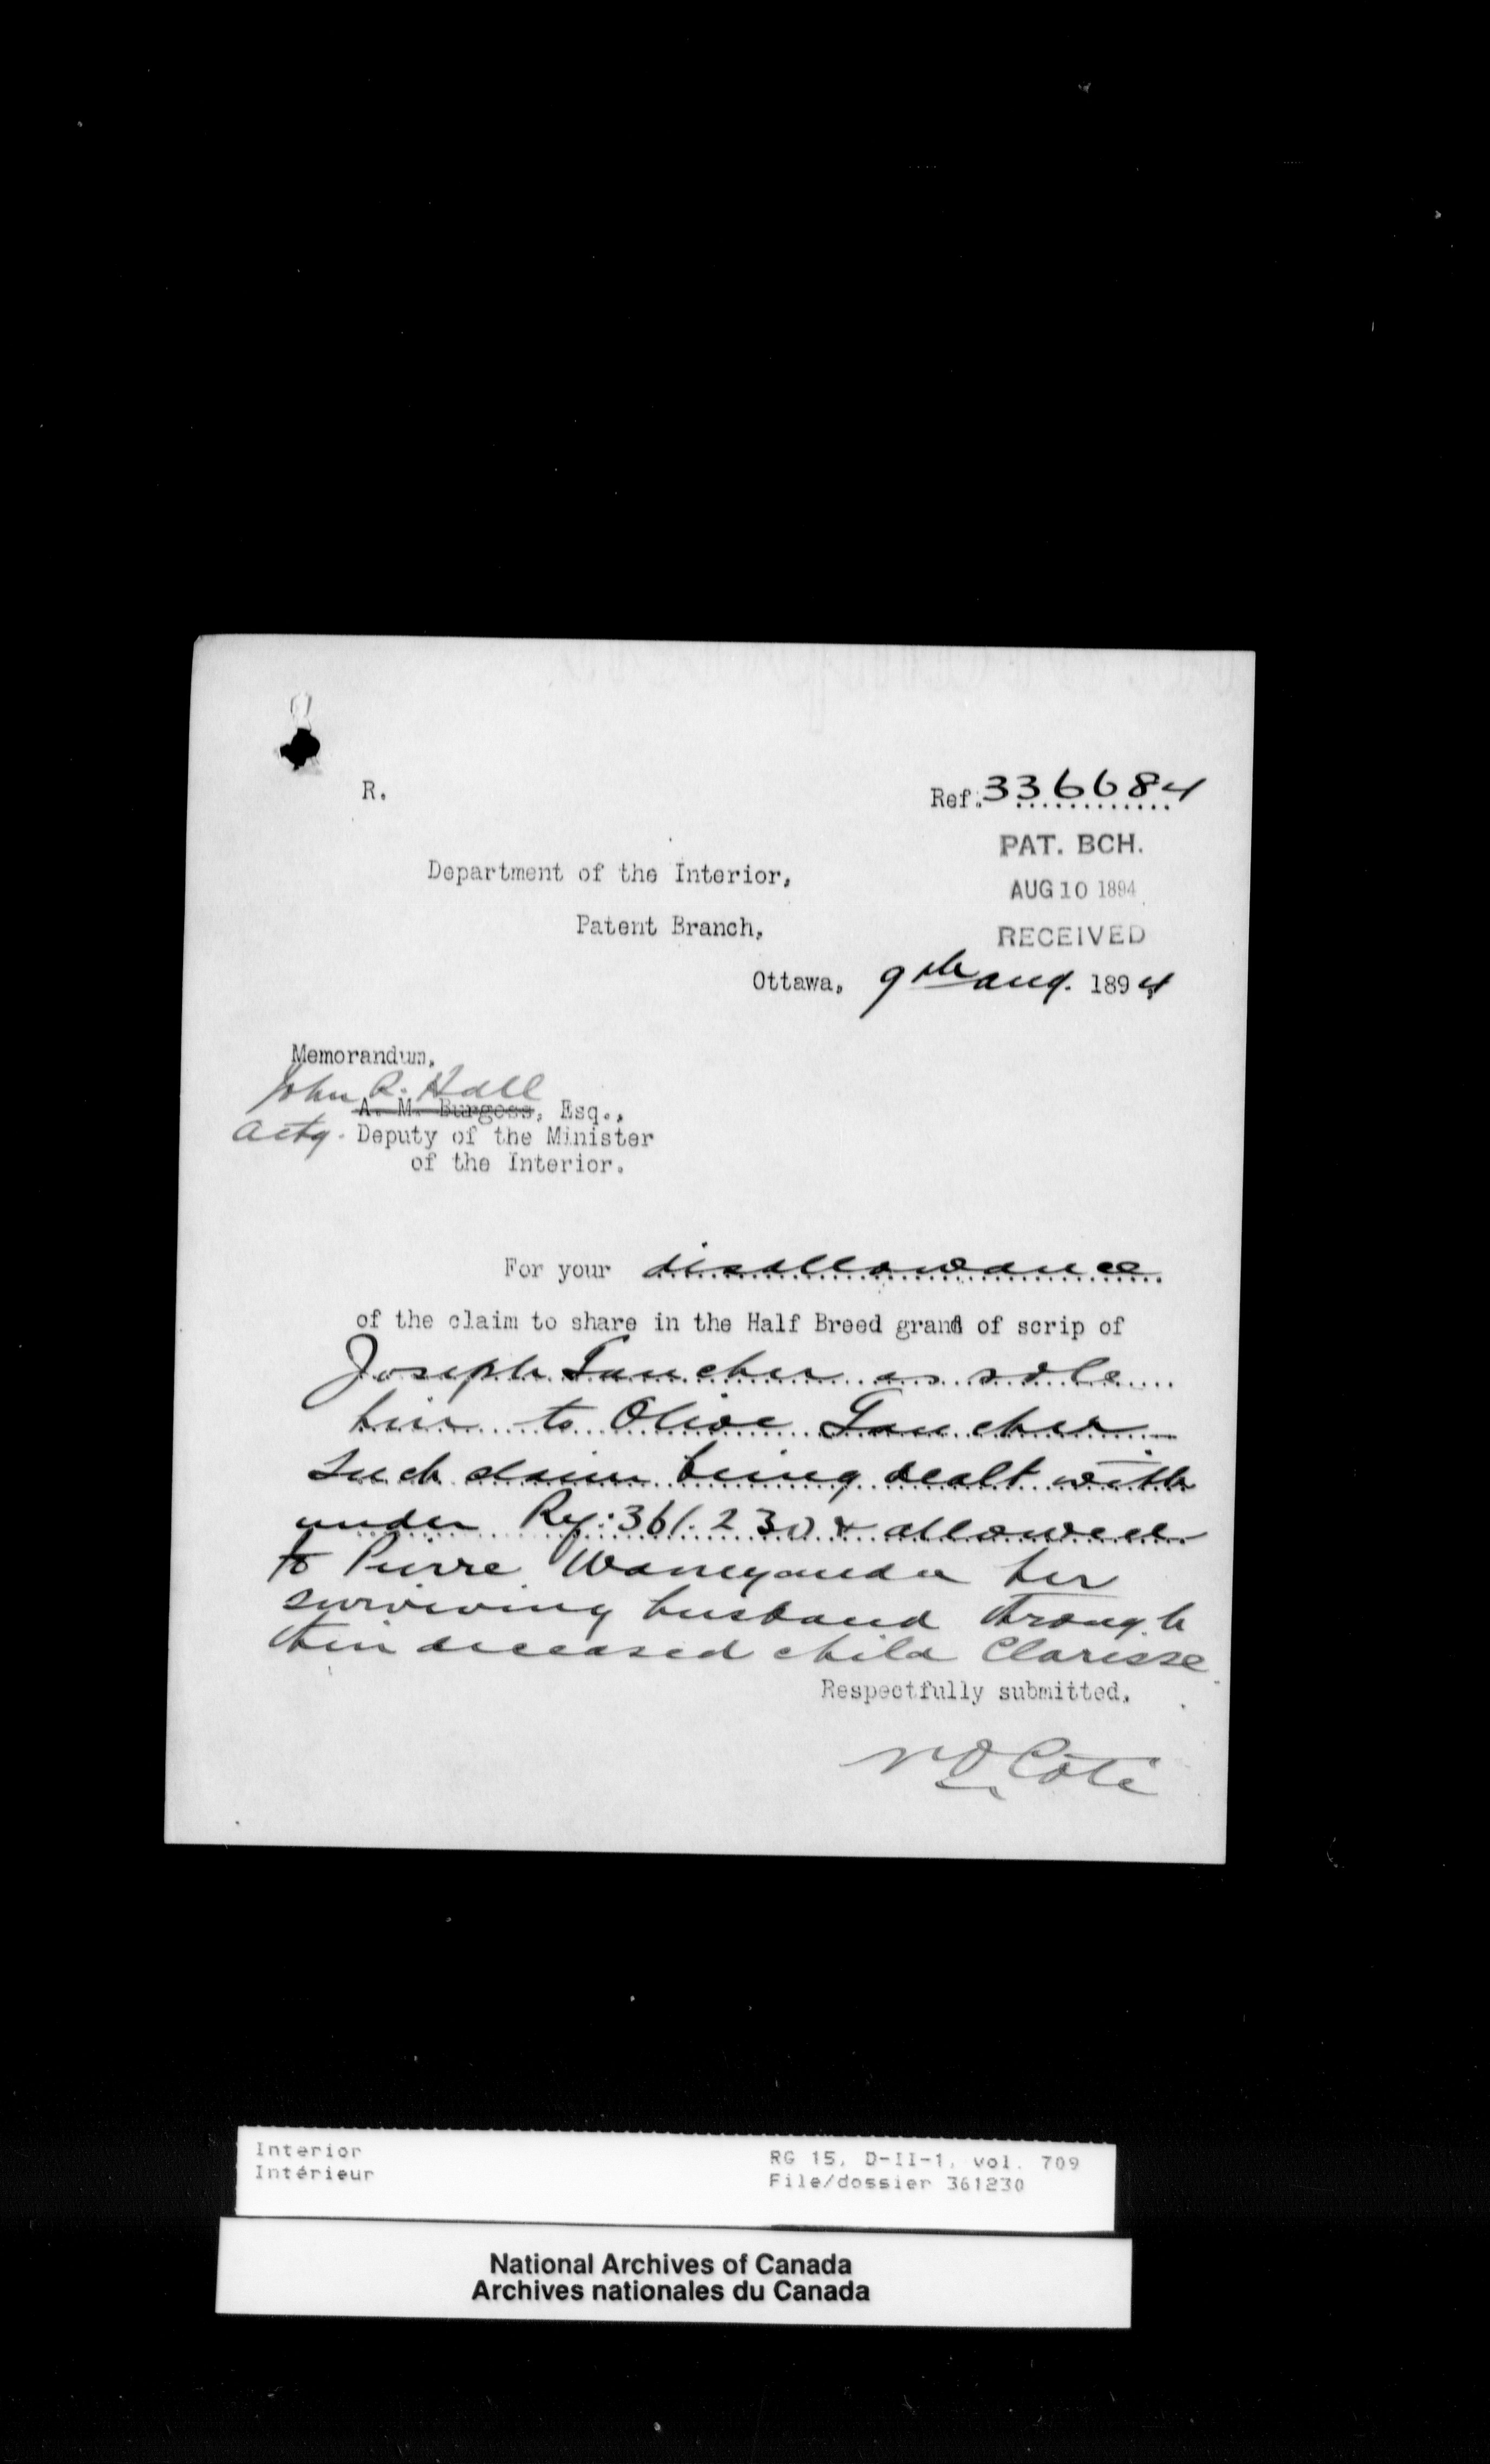 R.
Ref. 336684
PAT. BCH.
AUG 10 1894
RECEIVED
Department of the Interior,
Patent Branch,
Ottawa, 9th Aug. 1894
Memorandum.
John R. Hall
A. M. Burgess, Esq.,
Actg. Deputy of the Minister
of the Interior.
For your disallowance
of the claim to share in the Half Breed grant of scrip of
Joseph as sole
heir to Olive
Such claim being dealt with
under Ref: 361.230 & allowed
to Pierre her
surviving husband through
their deceased child Clarisse.
Respectfully submitted.
N O Coté
Interior
Intérieur
RG 15, D-II-1, vol. 709
File/dossier 361230
National Archives of Canada
Archives nationales du Canada